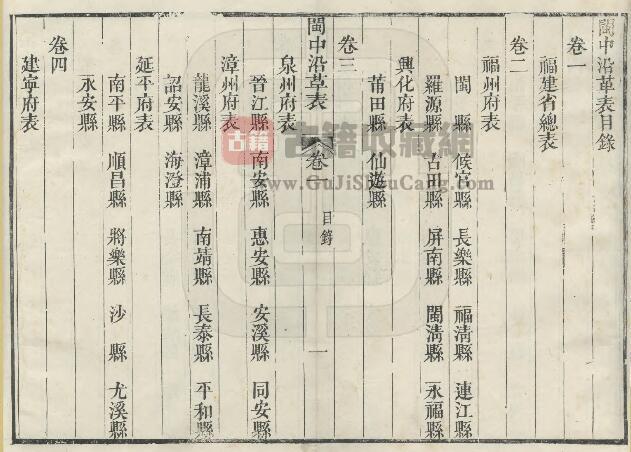 閩中沿革表目錄
卷一
福建省總表
卷二
福州府表
閩 縣 候官縣 長樂縣 福淸縣 連江縣
羅源縣 古田縣 屏南縣 閩淸縣 永福縣
興化府表
莆田縣 仙遊縣
卷三
閩中沿革表 卷一 目錄 一
泉州府表
晉江縣 南安縣 惠安縣 安溪縣 同安縣
漳州府表
龍溪縣 漳浦縣 南靖縣 長泰縣 平和縣
詔安縣 海澄縣
延平府表
南平縣 順昌縣 將樂縣 沙 縣 尤溪縣
永安縣
卷四
建寧府表
古籍
古籍收藏網
www.GuJiShouCang.com